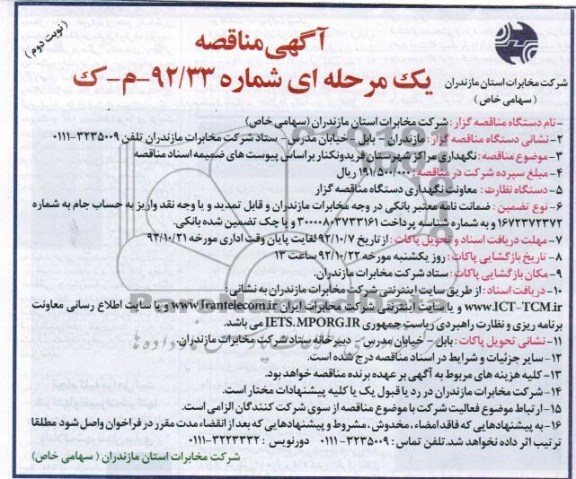 (نوبت دوم)
آگهی مناقصه
یک مرحله ای شماره ۹۲/۳۳-م-ک
شرکت مخابرات استان مازندران
(سهامی خاص)
۱- نام دستگاه مناقصه گزار: شرکت مخابرات استان مازندران (سهامی خاص)
۲- نشانی دستگاه مناقصه گزار: مازندران - بابل - خیابان مدرس - ستاد شرکت مخابرات مازندران تلفن ۳۲۳۵۰۰۹-۰۱۱۱
۳- موضوع مناقصه: نگهداری مراکز شهرستان فریدونکنار براساس پیوست های ضمیمه اسناد مناقصه
۴- مبلغ سپرده شرکت در مناقصه: ۱۹۱/۵۰۰/۰۰۰ ریال
۵- دستگاه نظارت: معاونت نگهداری دستگاه مناقصه گزار
۶- نوع تضمین: ضمانت نامه معتبر بانکی در وجه مخابرات مازندران و قابل تمدید و یا وجه نقد واریز به حساب جام به شماره
۱۶۷۲۳۷۲۳۷۲ و به شماره شناسه پرداخت ۳۰۰۰۰۸۰۳۷۳۳۱۶۱ و یا چک تضمین شده بانکی.
۷- مهلت دریافت اسناد و تحویل پاکات: از تاریخ ۹۲/۱۰/۷ لغایت پایان وقت اداری مورخه ۹۲/۱۰/۲۱
۸- تاریخ بازگشایی پاکات: روز یکشنبه مورخه ۹۲/۱۰/۲۲ ساعت ۱۳
۹- مکان بازگشایی پاکات: ستاد شرکت مخابرات مازندران.
۱۰- دریافت اسناد: از طریق سایت اینترنتی شرکت مخابرات مازندران به نشانی
www.ICT-TCM.ir و یا سایت اینترنتی شرکت مخابرات ایران www.Irantelecom.ir و یا سایت اطلاع رسانی معاونت
برنامه ریزی و نظارت راهبردی ریاست جمهوری IETS.MPORG.IR می باشد.
۱۱- نشانی تحویل پاکات: بابل - خیابان مدرس - دبیرخانه ستاد شرکت مخابرات مازندران.
۱۲- سایر جزئیات و شرایط در اسناد مناقصه درج شده است.
۱۳- کلیه هزینه های مربوط به آگهی بر عهده برنده مناقصه خواهد بود.
۱۴- شرکت مخابرات مازندران در رد یا قبول یک یا کلیه پیشنهادات مختار است.
۱۵- ارتباط موضوع فعالیت شرکت با موضوع مناقصه از سوی شرکت کنندگان الزامی است.
۱۶- به پیشنهادهایی که فاقد امضاء، مخدوش، مشروط و پیشنهادهایی که بعد از انقضاء مدت مقرر در فراخوان واصل شود مطلقا
ترتیب اثر داده نخواهد شد. تلفن تماس: ۳۲۳۵۰۰۹-۰۱۱۱ دورنویس: ۳۲۲۳۳۳۲-۰۱۱۱
شرکت مخابرات استان مازندران (سهامی خاص)